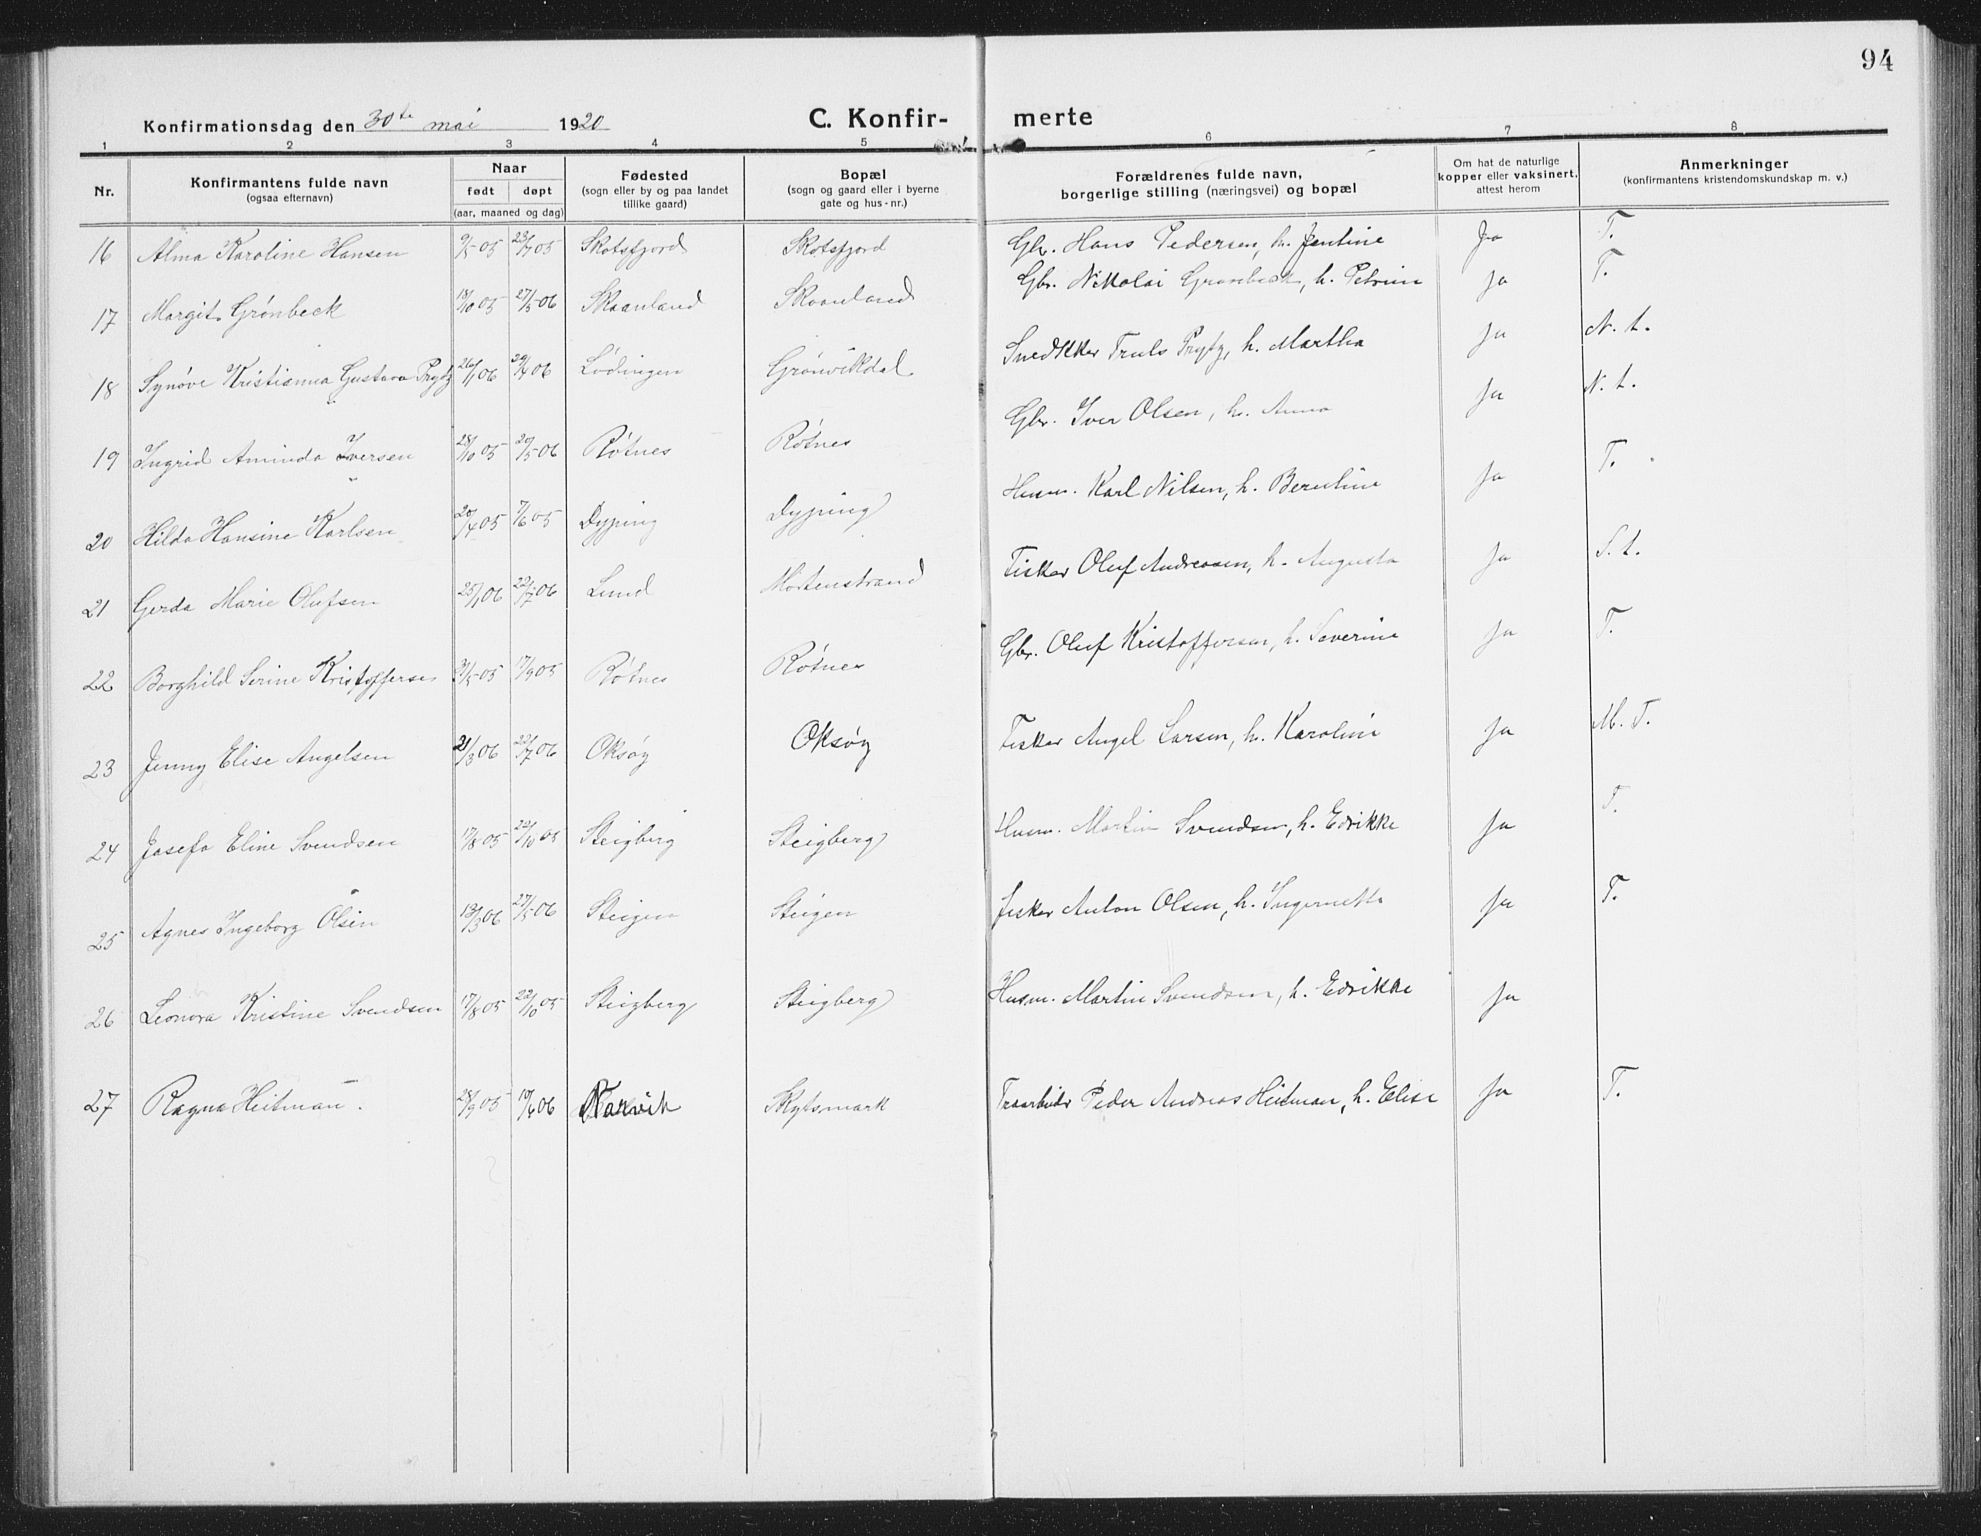 94
Konfirmationsdag den 30te mai 1920 C. Konfir- merte
1 2 3 4 5 6 7 8
Nr. Konfirmantens fulde navn (ogsaa efternavn) Naar født døpt (aar, maaned og dag) Fødested (sogn eller by og paa landet tillike gaard) Bopæl (sogn og gaard eller i byerne gate og hus-nr.) Forældrenes fulde navn, borgerlige stilling (næringsvei) og bopæl Om hat de naturlige kopper eller vaksinert. attest herom Anmerkninger (konfirmantens kristendomskundskap m. v.)
16 Alma Karoline Hansen 9/5 05 23/7 05 Skotsfjord Skotsfjord Gbr. Hans Pedersen, h. Jentine Ja T.
17 Margit Grønbeck 18/10 05 27/5 06 Skaanland Skaanland Gbr. Nikolai Grønbeck, h. Petrine ja T.
18 Synøve Kristianna Gustava Prytz 26/1 06 29/4 06 Lødingen Grønvikdal Snedkker Truls Prytz, h. Martha ja N. t.
19 Ingrid Aminda Iversen 28/10 05 20/5 06 Røtnes Røtnes Gbr. Iver Olsen, h. Anna ja N. t.
20 Hilda Hansine Karlsen 20/4 05 7/6 05 Dyping Dyping Husm. Karl Nilsen, h. Berntine ja T.
21 Gerda Marie Olufsen 25/1 06 22/7 06 Lund Mortenstrand Fisker Oluf Andreasen, h. Augusta ja S. t.
22 Borghild Serine Kristoffersen 21/5 05 17/9 05 Røtnes Røtnes Gbr. Oluf Kristoffersen, h. Severine ja T.
23 Jenny Elise Angelsen 21/3 06 22/7 06 Oksøy Oksøy Fisker Angel Larsen, h. Karoline ja M. T.
24 Josefa Eline Svendsen 17/8 05 22/10 05 Steigberg Steigberg Husm. Martin Svendsen, h. Edrikke ja T.
25 Agnes Ingeborg Olsen 13/3 06 27/5 06 Steigen Steigen fisker Anton Olsen, h. Ingernette ja T.
26 Leonora Kristine Svendsen 17/8 05 22/10 05 Steigberg Steigberg Husm. Martin Svendsen, h. Edrikke ja
27 Ragna Heitman. 28/9 05 19/6 06 Narvik Skytsmark Peder Andreas Heitman, h. Elise ja T.